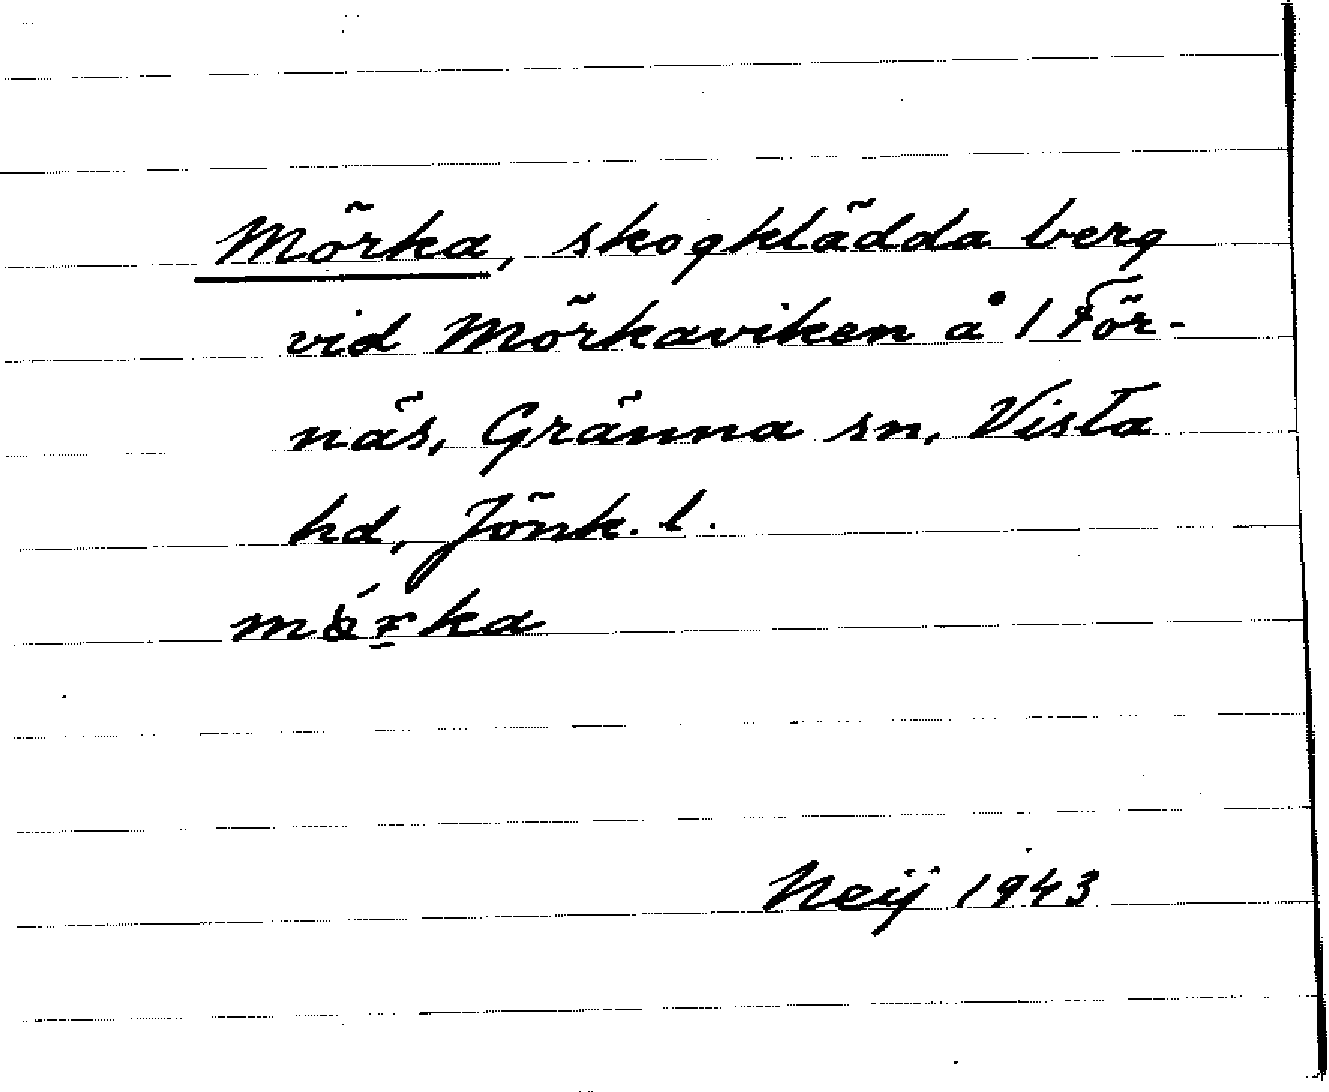 Mörka, skogklädda berg
vid Mörkaviken å 1 För-
näs, Gränna sn, Vista
hd, Jönk. l.
Neij 1943